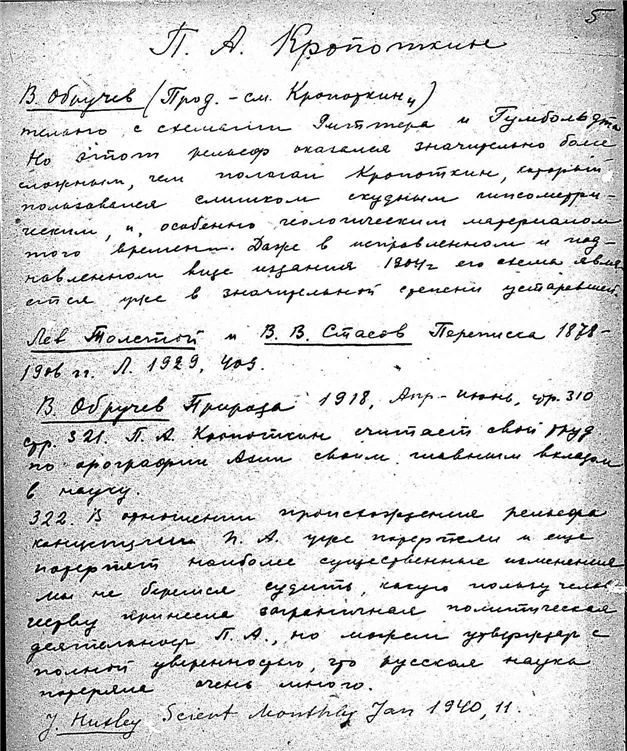 5
П. А. Кропоткин
В. Обручев (Прод. - см. Кропоткин 4)
тельно с схемами Риттера и Гумбольдта
Но этот рельеф оказался значительно более
сложным, чем полагал Кропоткин, который
пользовался слишком скудным гипсометри-
ческим, и, особенно геологическим материалом
того времени. Даже в исправленном и под-
новленном виде издания 1904 г его схема явля
ется уже в значительной степени устаревшей.
Лев Толстой и В. В. Стасов Переписка 1878-
1906 гг. Л. 1929, 409.
В. Обручев Природа 1918, Апр-июнь, стр. 310
стр. 321. П. А. Кропоткин считает свой труд
по орографии Азии своим главным вкладом
в науку.
322. В отношении происхождения рельефа
концепции П. А. уже потерпели и еще
потерпят наиболее существенные изменения
мы не беремся судить, какую пользу челове
честву принесла заграничная политическая
деятельность П. А., но можем утверждать с
полной уверенностью, что русская наука
потеряла очень много.
J. Huxley Scient Monthly Jan 1940, 11.